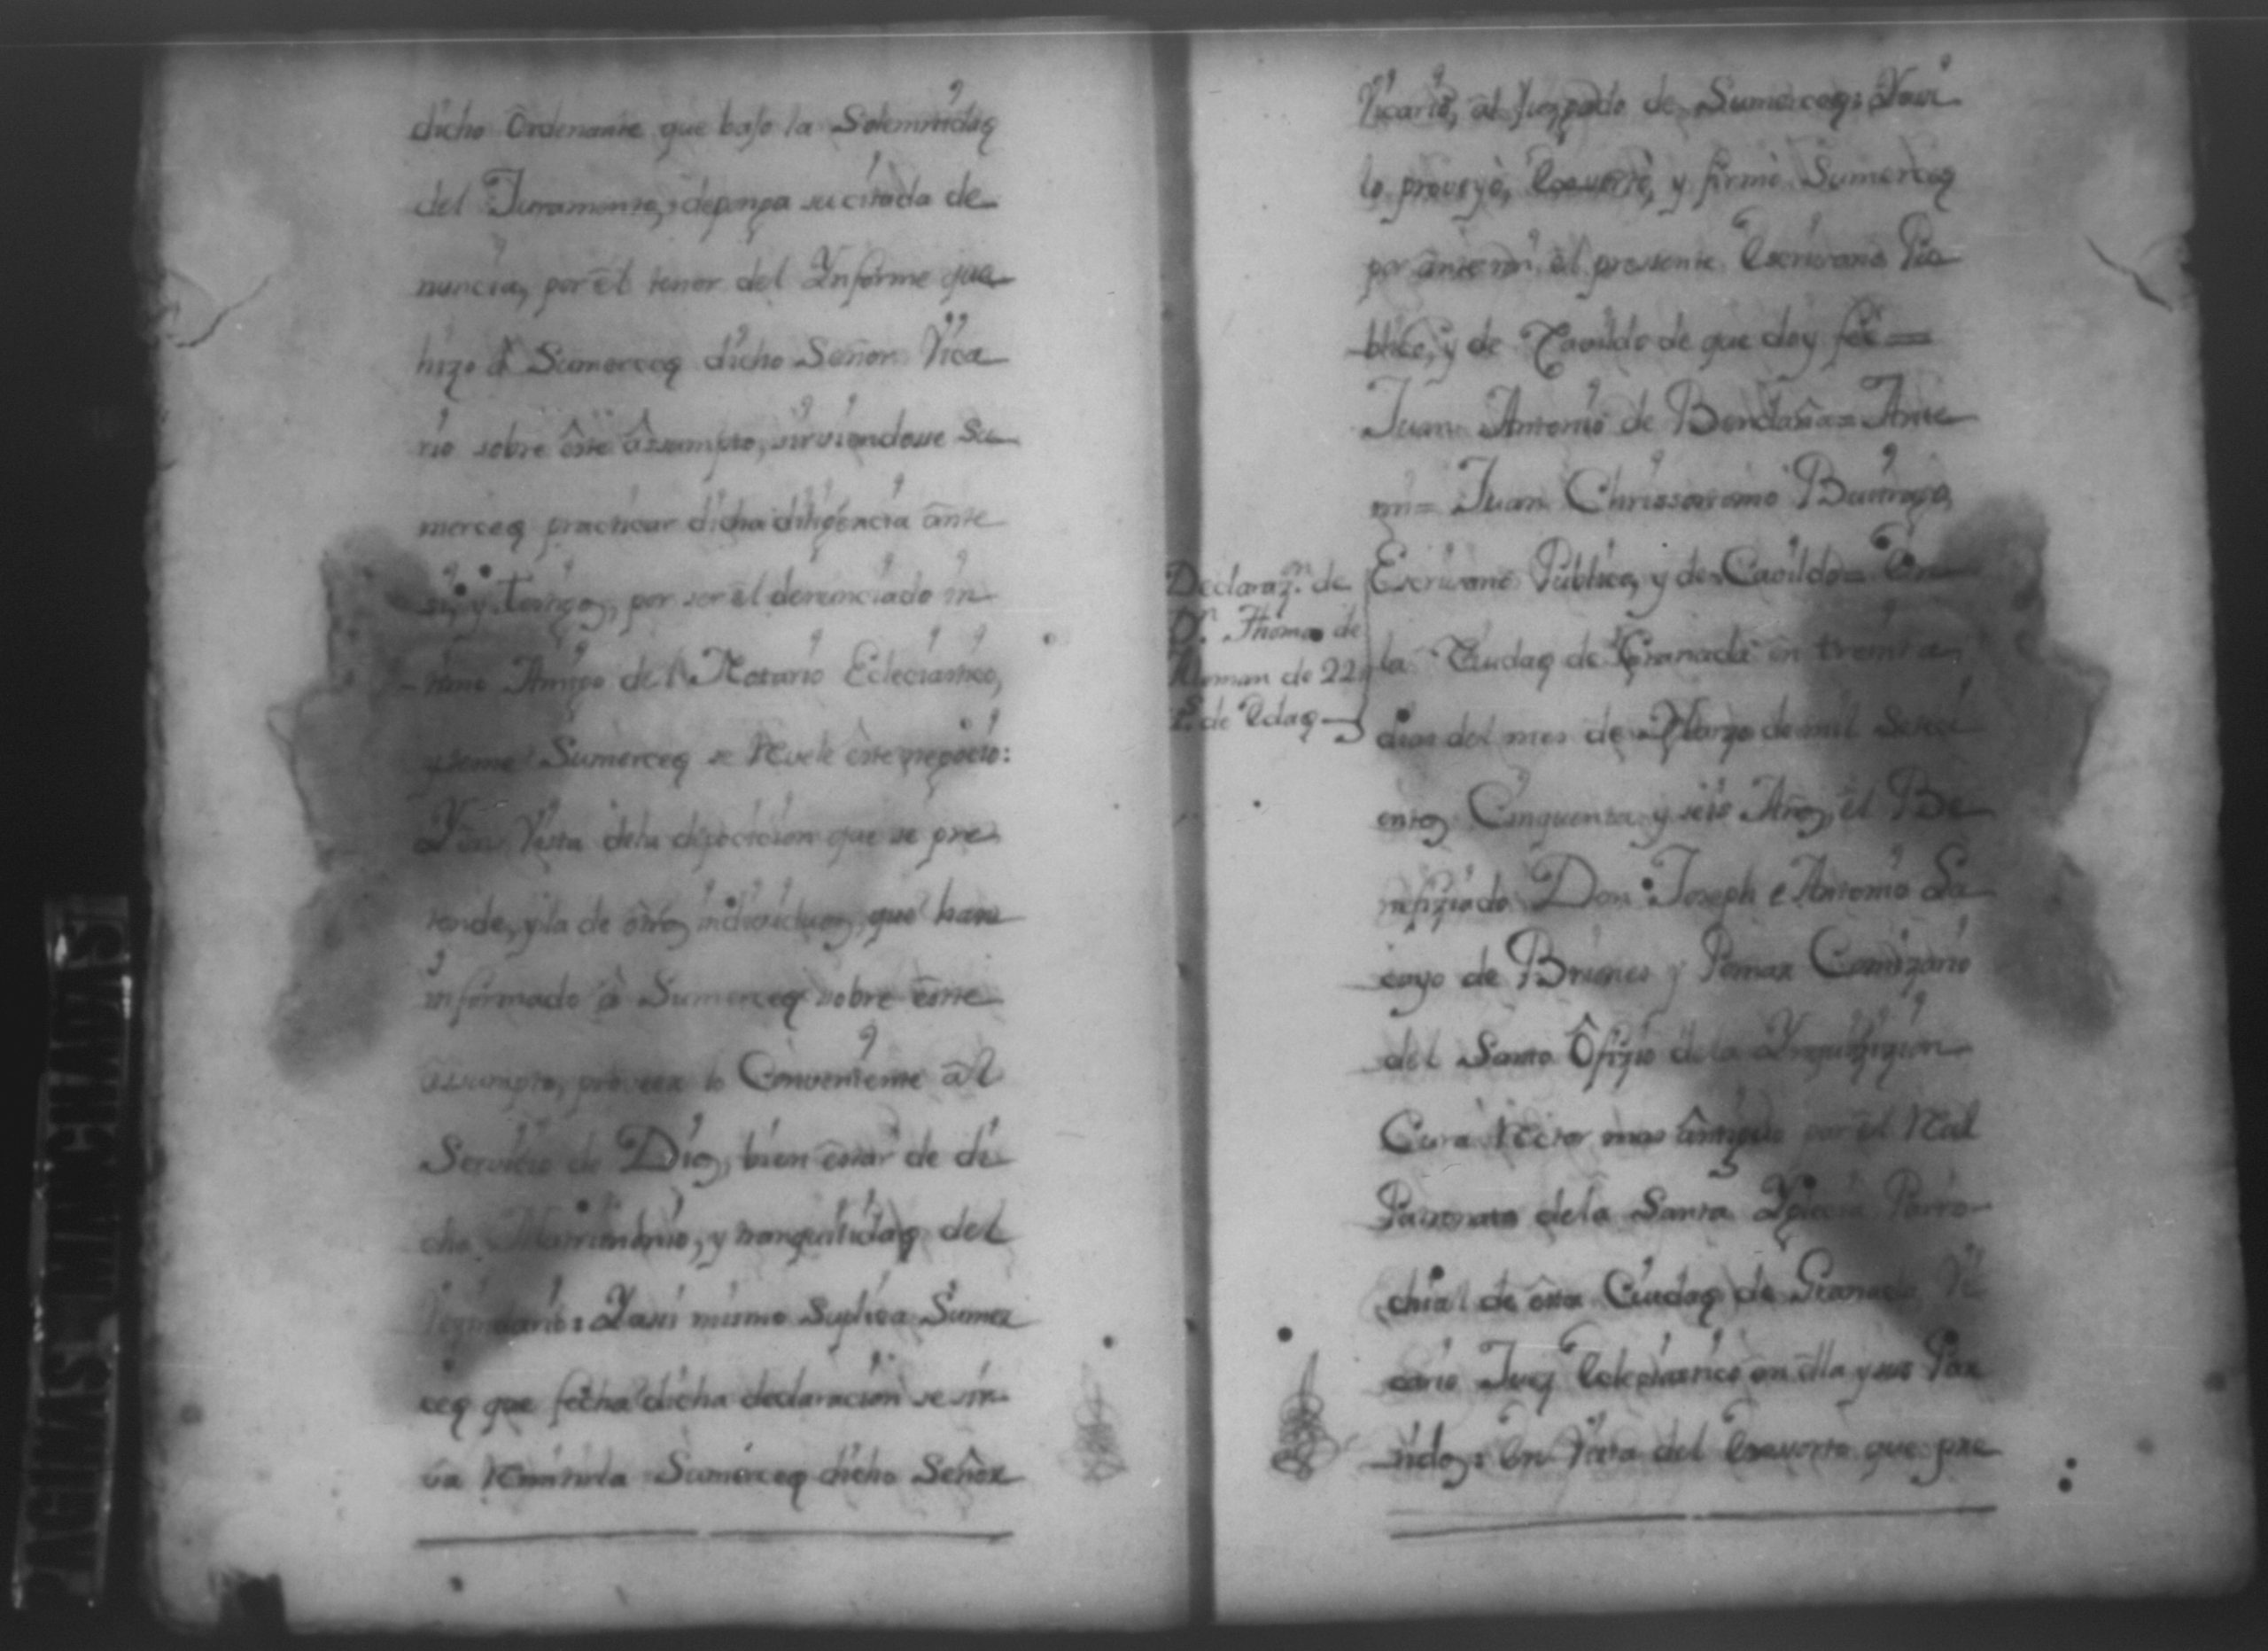 dicho Ordenante que bajo la Solemnidad
del Juramento, deponga su citada de
nuncia, por el tenor del Ynforme que
hizo â Sumerced dicho Señor Vica
rio sobre êste âssumpto, sirviendose Su
merced practicar dicha diligencia ante
si, y testigos, por ser el denunciado in
timo Amigo del Notario Eclesiastico,
y teme Sumerced se Revele êste negocio:
Y en Vista dela disposicion que se pre
tende, y la de ôtros individuos, que han
informado â Sumerced sobre êste
âssumpto, provera lo Conveniente al
Servicio de Dios, bien êstar de di
cho Matrimonio, y tranquilidad del
Vezindario: Y assi mismo Suplica Sumer
ced que fecha dicha declaracion se sir
va Remitirla Sumerced dicho Señor
Vicario, al Juzgado de Sumerced: Y assi
lo proveyò, Exsuorto, y firmò Sumerced
por ante mi el pressente Escrivano Pu
blico, y de Cavildo de que doy feê =
Juan Antonio de Bendaña = Ante
mi = Juan Chrissostomo Buitrago,
Escrivano Publico, y de Cavildo = En
la Ciudad de Granada en treinta
dias del mes de Marzo de mil Setеci
entos Cinquenta y seis Años, el Be
nefiziado Don Joseph Antonio La
cayo de Briones y Pomar Comizario
del Santo Ôfizio dela Ynquizizion
Cura Rector mas ântiguo por el Real
Patronato dela Santa Yglecia Parro-
chial de êsta Ciudad de Granada, Vi
cario Juez Eclesiastico en ella y sus Par
tidos: En Vista del Exsuorto que pre
Declaraz.n de
D.n Thomas de
Aleman de 22
de Edad
PAGINAS MANCHADAS